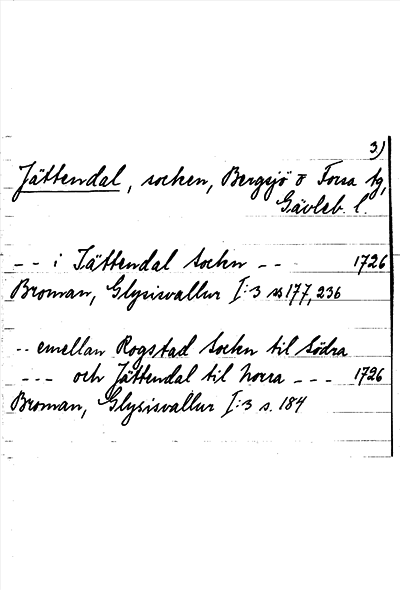 3)
Jättendal, socken, Bergsjö o Forsa tg,
Gävleb. l.
-- i Jättendal Sockn -- 1726
Broman, Glysisvallur I:3 ss 177, 236
-- emellan Rogstad Sockn til Södra
--- och Jättendal til Norra --- 1726
Broman, Glysisvallur I:3 s. 184